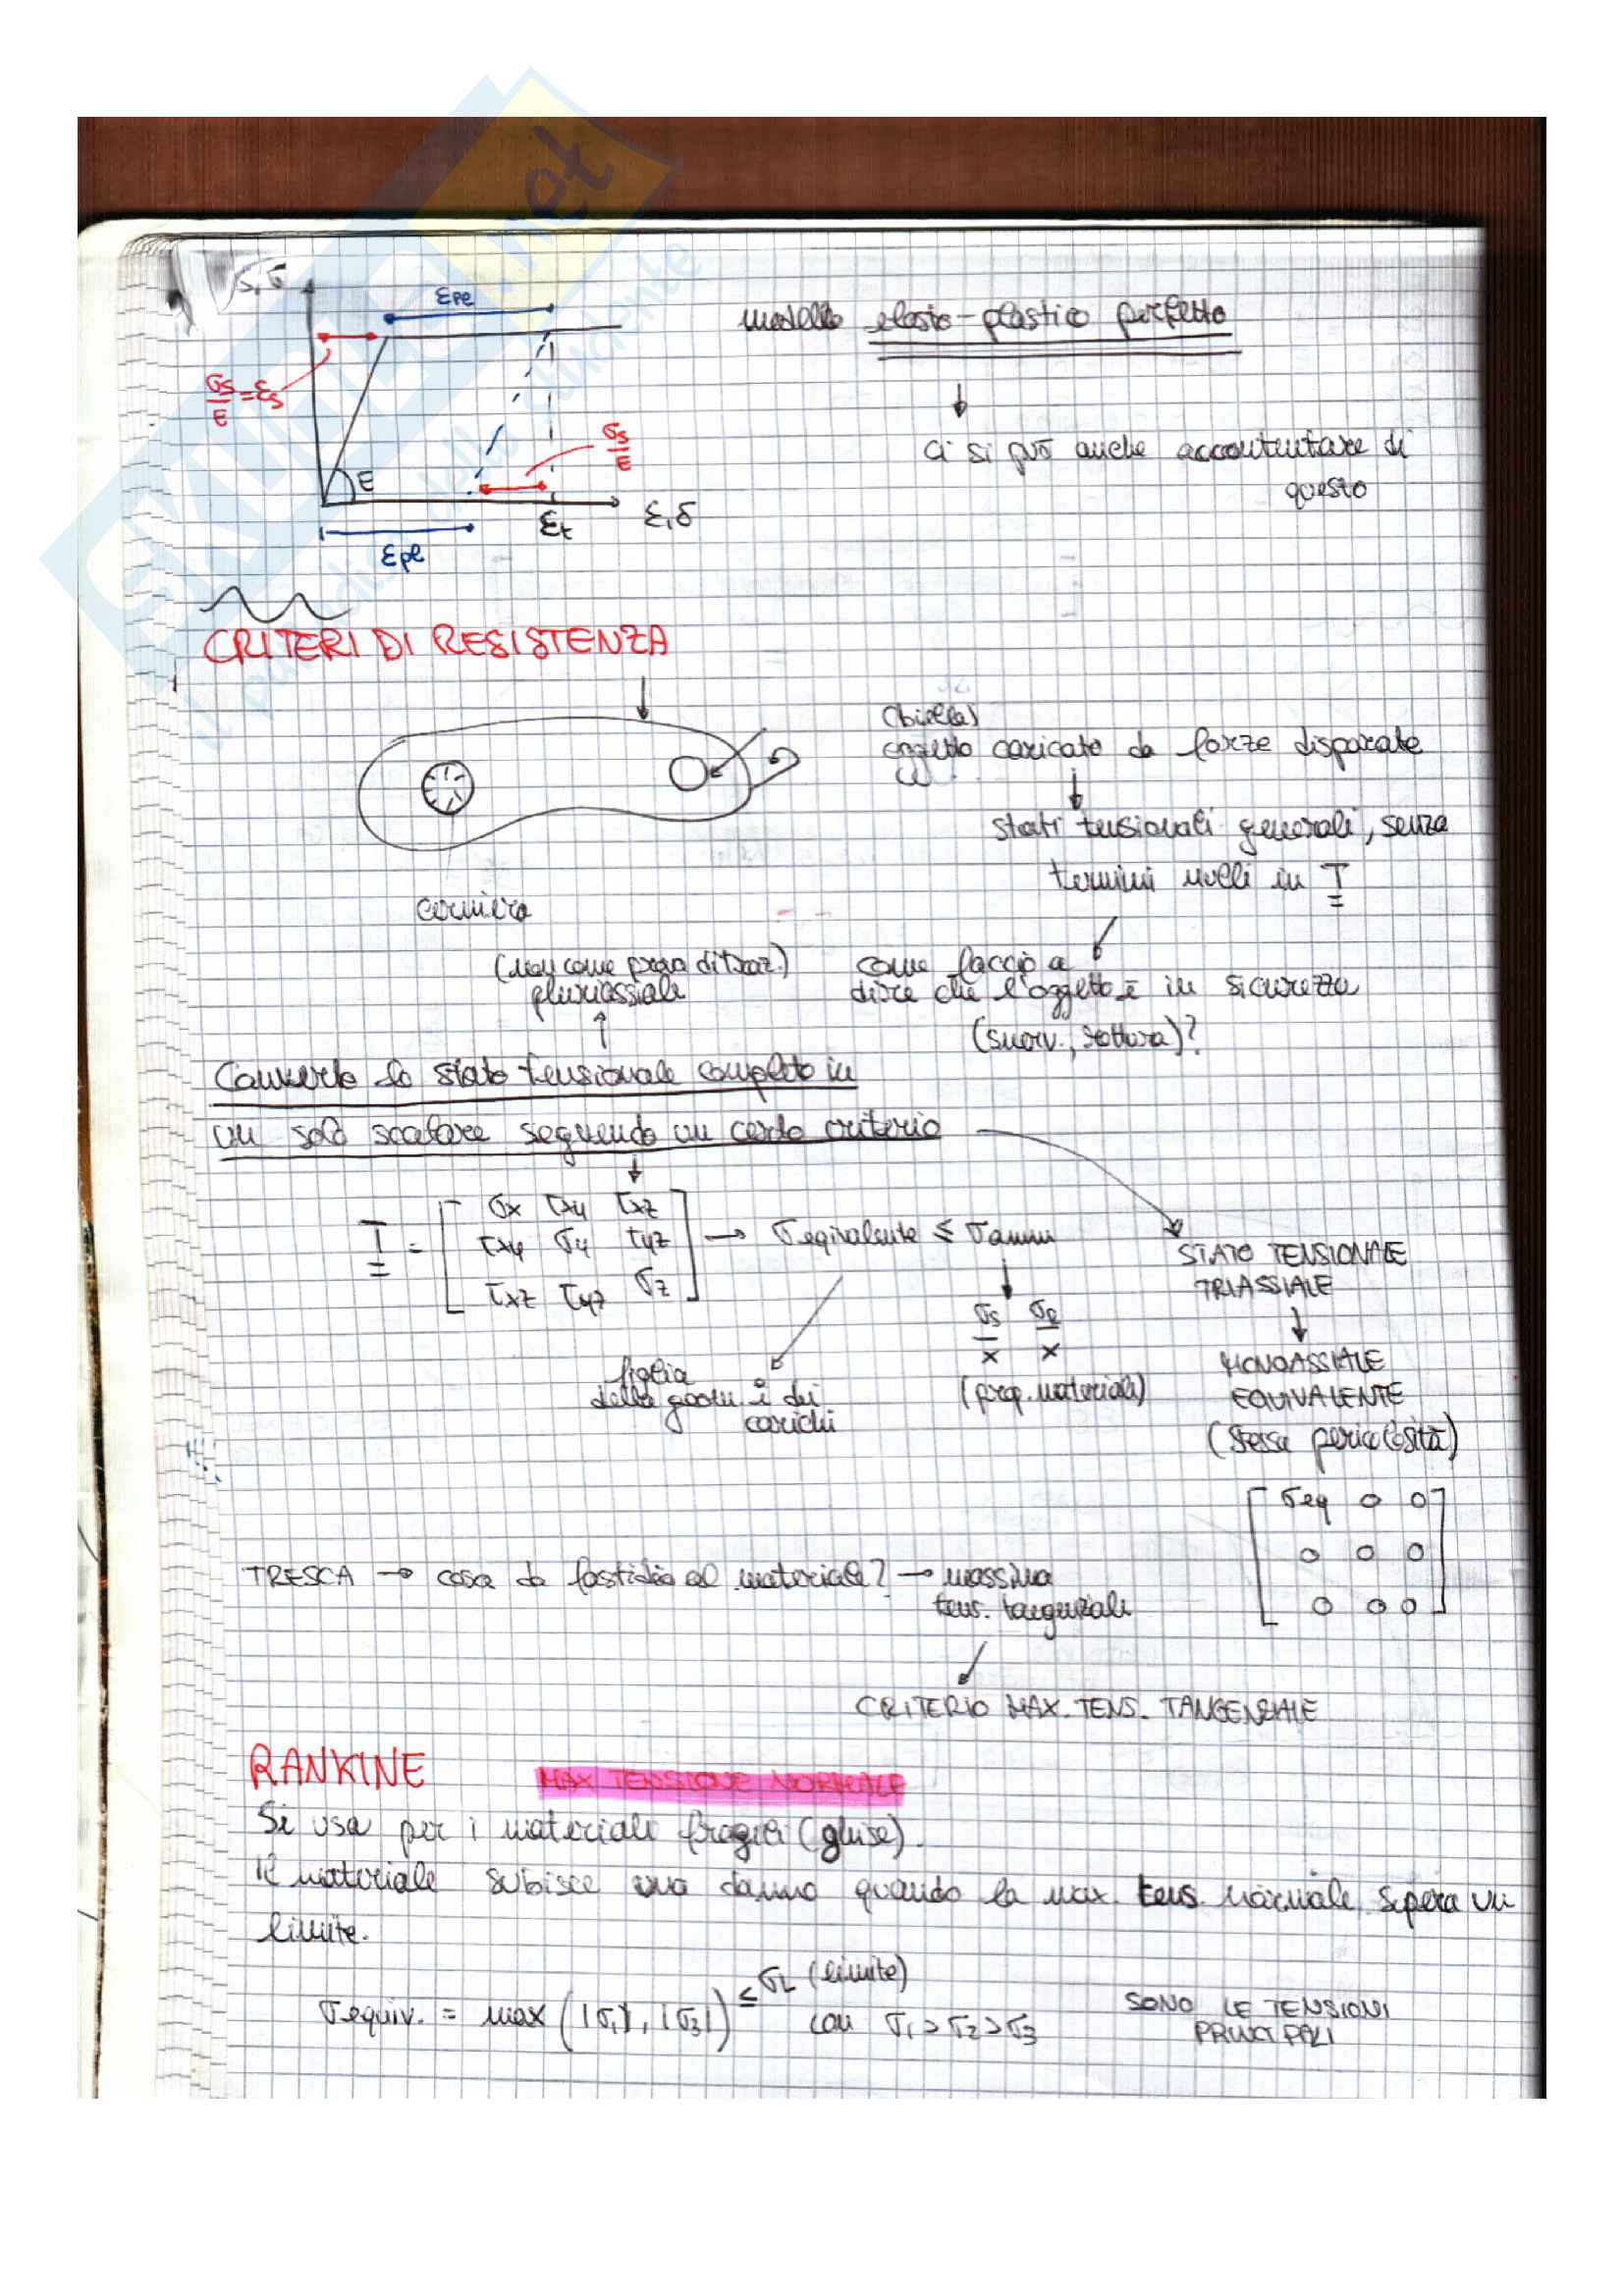 S, σ
εpl
modello elasto-plastico perfetto
σs/E = εs
ci si può anche accontentare di
questo
σs/E
E
εt
ε, δ
εpl
CRITERI DI RESISTENZA
(biella)
oggetto caricato da forze disparate
stati tensionali generali, senza
termini nulli in T
cerniera
(non come prova di traz.)
pluriassiale
come faccio a
dire che l'oggetto è in sicurezza
(snerv., rottura)?
Converto lo stato tensionale completo in
un solo scalare seguendo un certo criterio
T = [ σx τxy τxz
τxy σy τyz
τxz τyz σz ] → σequivalente ≤ σamm
STATO TENSIONALE
TRIASSIALE
σs/x σR/x
(prop. materiali)
figlia
della geom. e dei
carichi
MONOASSIALE
EQUIVALENTE
(stessa pericolosità)
[ σeq 0 0
0 0 0
0 0 0 ]
TRESCA → cosa da fastidio al materiale? → massima
tens. tangenziale
CRITERIO MAX. TENS. TANGENZIALE
RANKINE MAX TENSIONE NORMALE
Si usa per i materiali fragili (ghise).
Il materiale subisce una danno quando la max. tens. normale supera un
limite.
σequiv. = max (|σ1|, |σ3|) ≤ σL (limite) con σ1 > σ2 > σ3
SONO LE TENSIONI
PRINCIPALI